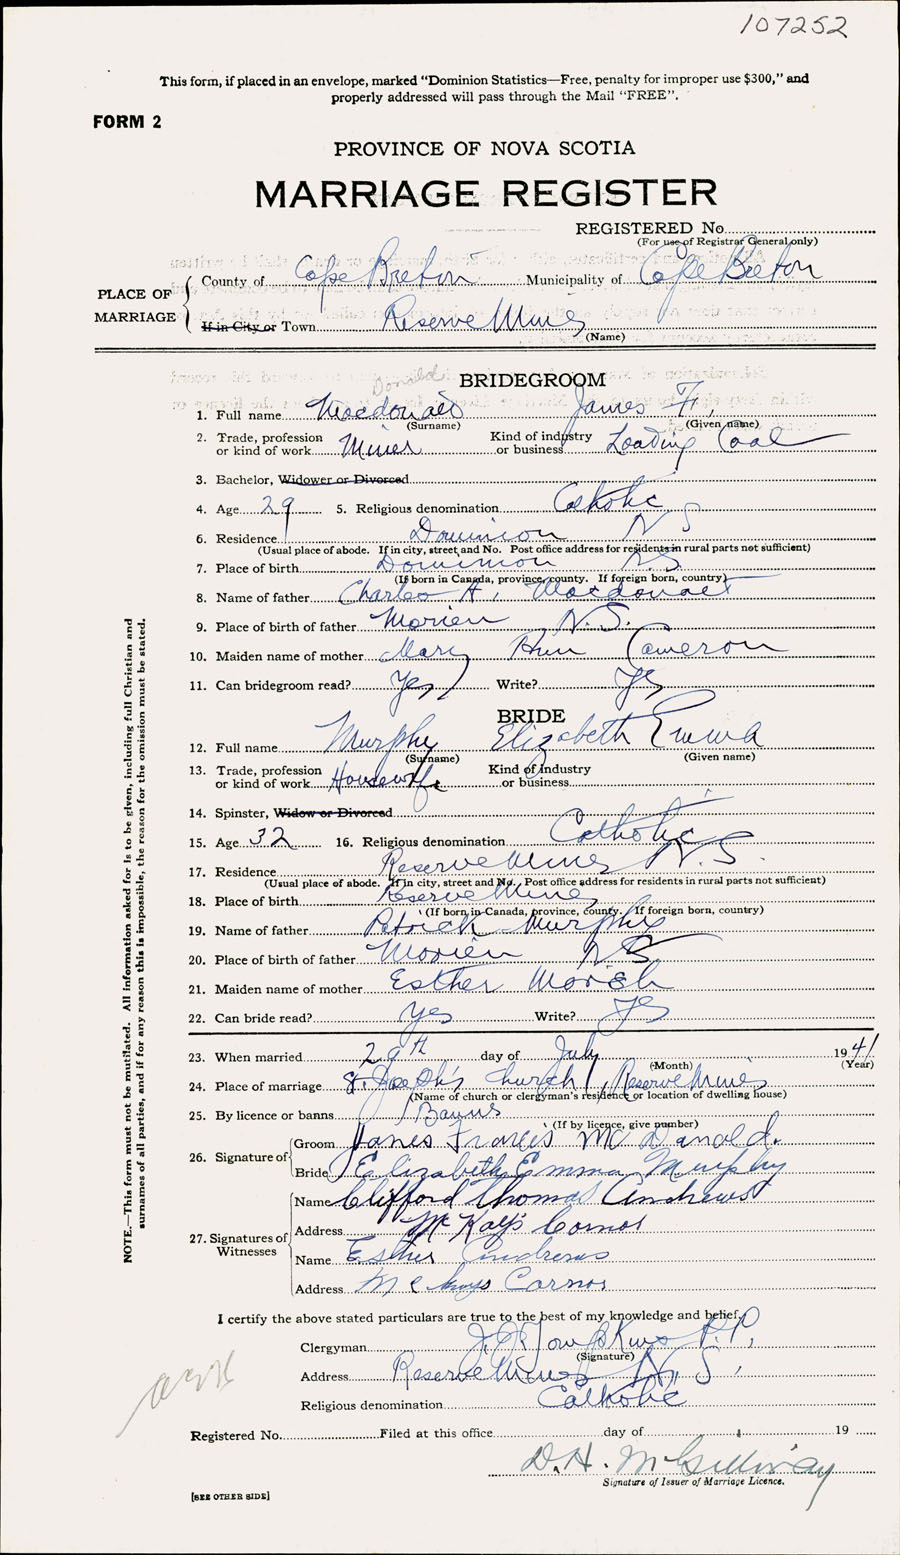 107252
This form, if placed in an envelope, marked “Dominion Statistics—Free, penalty for improper use $300,” and
properly addressed will pass through the Mail “FREE”.
FORM 2
PROVINCE OF NOVA SCOTIA
MARRIAGE REGISTER
REGISTERED No.
(For use of Registrar General only)
PLACE OF MARRIAGE
County of Cape Breton Municipality of Cape Breton
If in City or Town Reserve Mines
(Name)
Donald
BRIDEGROOM
1. Full name Macdonald James F.
(Surname) (Given name)
2. Trade, profession or kind of work Miner Kind of industry or business Loading Coal
3. Bachelor, Widower or Divorced
4. Age 29 5. Religious denomination Catholic
6. Residence Dominion N S
(Usual place of abode. If in city, street and No. Post office address for residents in rural parts not sufficient)
7. Place of birth Dominion N.S.
(If born in Canada, province, county. If foreign born, country)
8. Name of father Charles A. Macdonald
9. Place of birth of father Morien N.S.
10. Maiden name of mother Mary Ann Cameron
11. Can bridegroom read? Yes Write? Yes
BRIDE
12. Full name Murphy Elizabeth Emma
(Surname) (Given name)
13. Trade, profession or kind of work Housewife Kind of Industry or business
14. Spinster, Widow or Divorced
15. Age 32 16. Religious denomination Catholic
17. Residence Reserve Mines N.S.
(Usual place of abode. If in city, street and No. Post office address for residents in rural parts not sufficient)
18. Place of birth Reserve Mines
(If born in Canada, province, county. If foreign born, country)
19. Name of father Patrick Murphy
20. Place of birth of father Morien NS
21. Maiden name of mother Esther
22. Can bride read? Yes Write? Yes
23. When married 29th day of July 1941
(Month) (Year)
24. Place of marriage St. Joseph's Church, Reserve Mines
(Name of church or clergyman's residence or location of dwelling house)
25. By licence or banns Banns
(If by licence, give number)
26. Signature of
Groom James Francis McDanold.
Bride Elizabeth Emma Murphy
27. Signatures of Witnesses
Name Clifford Thomas Andrews
Address McKay's Cornor
Name Esther Andrews
Address Cornor
I certify the above stated particulars are true to the best of my knowledge and belief.
Clergyman J.J. Tompkins P.P.
(Signature)
Address Reserve Mines N.S.
Religious denomination Catholic
Registered No. Filed at this office day of 19
D.H. McGillivray
Signature of Issuer of Marriage Licence.
[SEE OTHER SIDE]
NOTE.—This form must not be mutilated. All information asked for is to be given, including full Christian and
surnames of all parties, and if for any reason this is impossible, the reason for the omission must be stated.